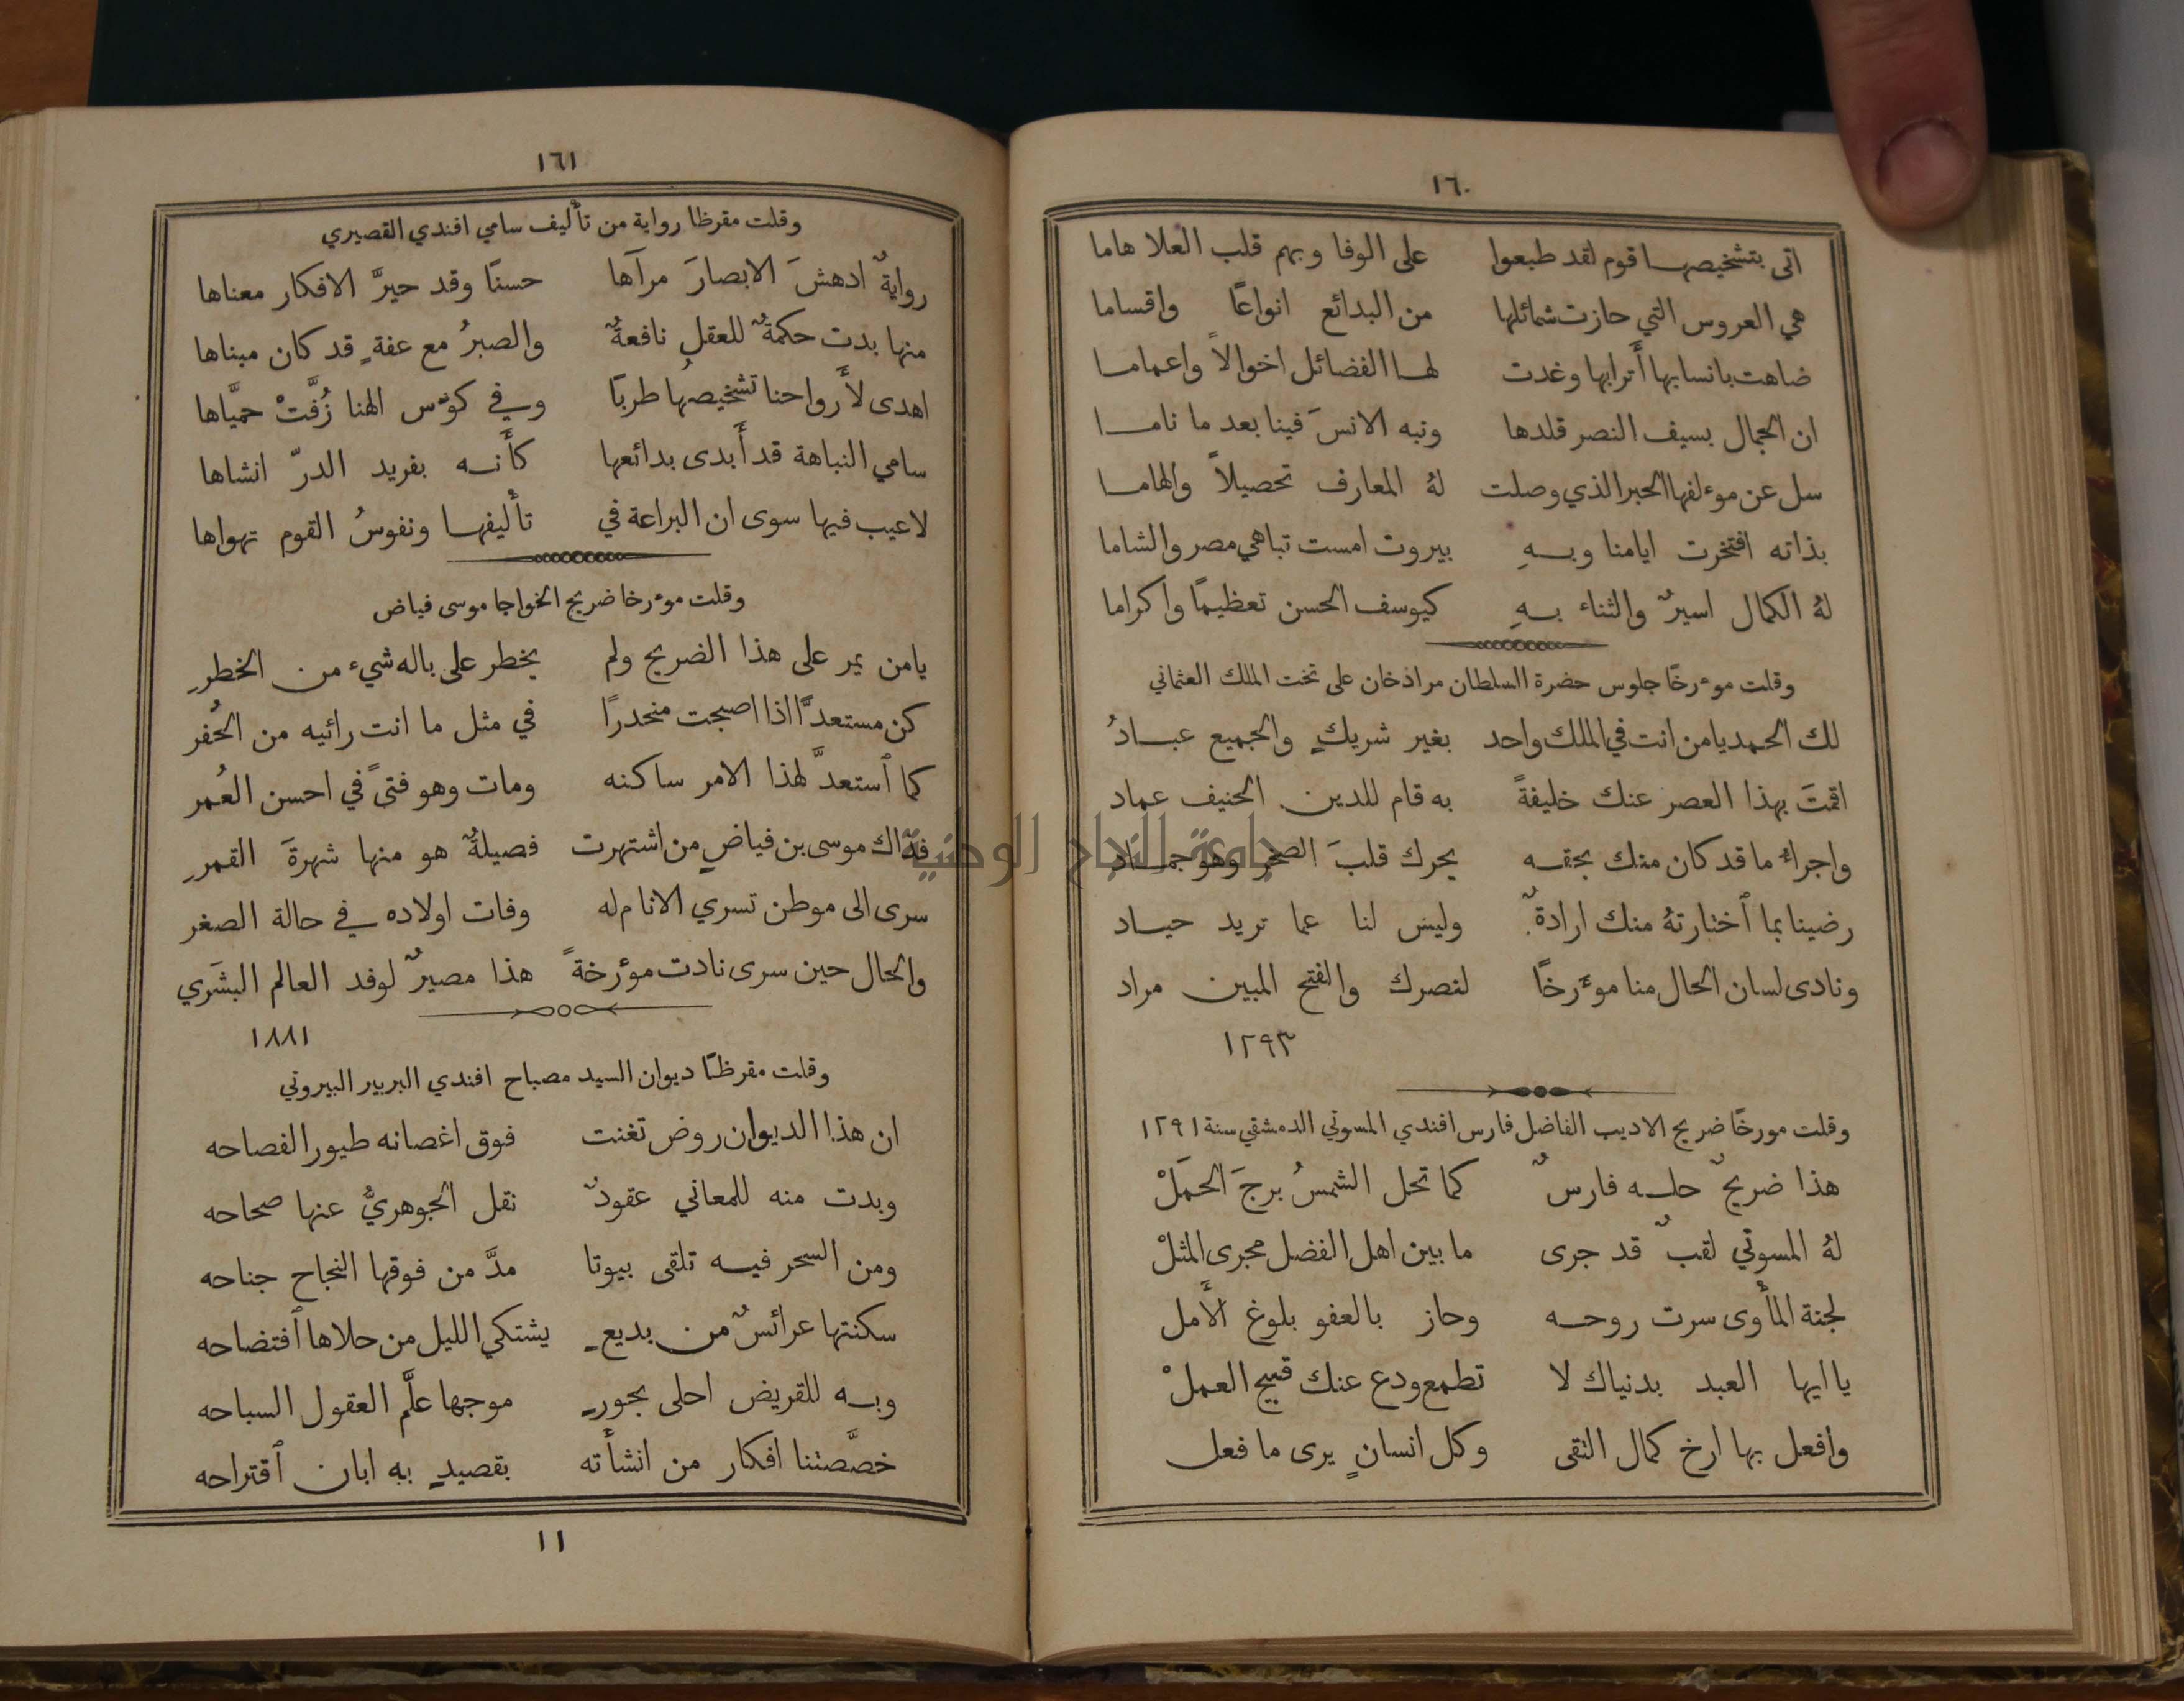 ١٦٠
اتى بتشخيصها قوم لقد طبعوا على الوفا وبهم قلب العلا هاما
هي العروس التي حازت شمائلها من البدائع انواعًا واقساما
ضاهت بانسابها أترابها وغدت لها الفضائل اخوالاً واعماما
ان الجمال بسيف النصر قلدها ونبه الانسَ فينا بعد ما ناما
سل عن موءلفها الحبر الذي وصلت لهُ المعارف تحصيلاً والهاما
بذاته افتخرت ايامنا وبهِ بيروت امست تباهي مصر والشاما
لهُ الكمال اسيرٌ والثناء بهِ كيوسف الحسن تعظيمًا واكراما
وقلت موءرخًا جلوس حضرة السلطان مراد خان على تخت الملك العثماني
لك الحمد يا من انت في الملك واحد بغير شريكٍ والجميع عبادُ
اقمتَ بهذا العصر عنك خليفةً به قام للدين الحنيف عماد
واجراءُ ما قد كان منك بحقه يحرك قلبَ الصخر وهو جماد
رضينا بما ٱختارتهُ منك ارادةٌ وليس لنا عما تريد حياد
ونادى لسان الحال منا موءرخًا لنصرك والفتح المبين مراد
١٢٩٣
وقلت مورخًا ضريح الاديب الفاضل فارس افندي المسوتي الدمشقي سنة ١٢٩١
هذا ضريحٌ حله فارسٌ كما تحل الشمسُ برجَ الحَمَلْ
لهُ المسوتي لقبٌ قد جرى ما بين اهل الفضل مجرى المثلْ
لجنة المأوى سرت روحه وحاز بالعفو بلوغ الأَمل
يا ايها العبد بدنياك لا تطمع ودع عنك قبيح العملْ
وافعل بها ارخ كمال التقى وكل انسانٍ يرى ما فعل
١٦١
وقلت مقرظا رواية من تأليف سامي افندي القصيري
روايةٌ ادهشَ الابصارَ مرآها حسنًا وقد حيرَّ الافكار معناها
منها بدت حكمةٌ للعقل نافعةٌ والصبرُ مع عفةٍ قد كان مبناها
اهدى لأَرواحنا تشخيصُها طربًا وفي كوءس الهنا زُفَّتْ حميَّاها
سامي النباهة قد أَبدى بدائعها كأَنه بفريد الدرّ انشاها
لاعيب فيها سوى ان البراعة في تأليفها ونفوسُ القوم تهواها
وقلت موءرخا ضريح الخواجا موسى فياض
يا من يمر على هذا الضريح ولم يخطر على باله شيء من الخطرِ
كن مستعدًّا اذا اصبحت منحدرًا في مثل ما انت رائيه من الحُفر
كما ٱستعدَّ لهذا الامر ساكنه ومات وهو فتىً في احسن العُمر
فذاك موسى بن فياضٍ من اشتهرت فصيلةٌ هو منها شهرةَ القمرِ
سرى الى موطن تسري الانام له وفات اولاده في حالة الصغر
والحال حين سرى نادت موءرخةً هذا مصيرٌ لوفد العالم البشَري
١٨٨١
وقلت مقرظًا ديوان السيد مصباح افندي البربير البيروتي
ان هذا الديوان روض تغنت فوق اغصانه طيور الفصاحه
وبدت منه للمعاني عقودٌ نقل الجوهريُّ عنها صحاحه
ومن السحر فيه تلقى بيوتا مدَّ من فوقها النجاح جناحه
سكنتها عرائسٌ من بديعٍ يشتكي الليل من حلاها ٱفتضاحه
وبه للقريض احلى بحورٍ موجها علَّم العقول السباحه
خصَّصتنا افكار من انشأَته بقصيدٍ به ابان ٱقتراحه
١١
جامعة النجاح الوطنية